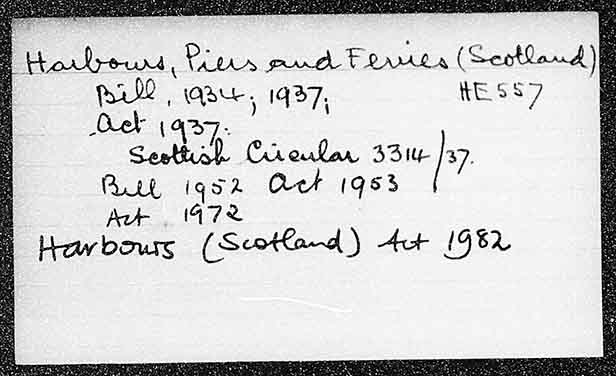 Harbours, Piers and Ferries (Scotland)
Bill, 1934; 1937; HE 557
Act 1937:
Scottish Circular 3314/37.
Bill 1952 Act 1953
Act 1972
Harbours (Scotland) Act 1982